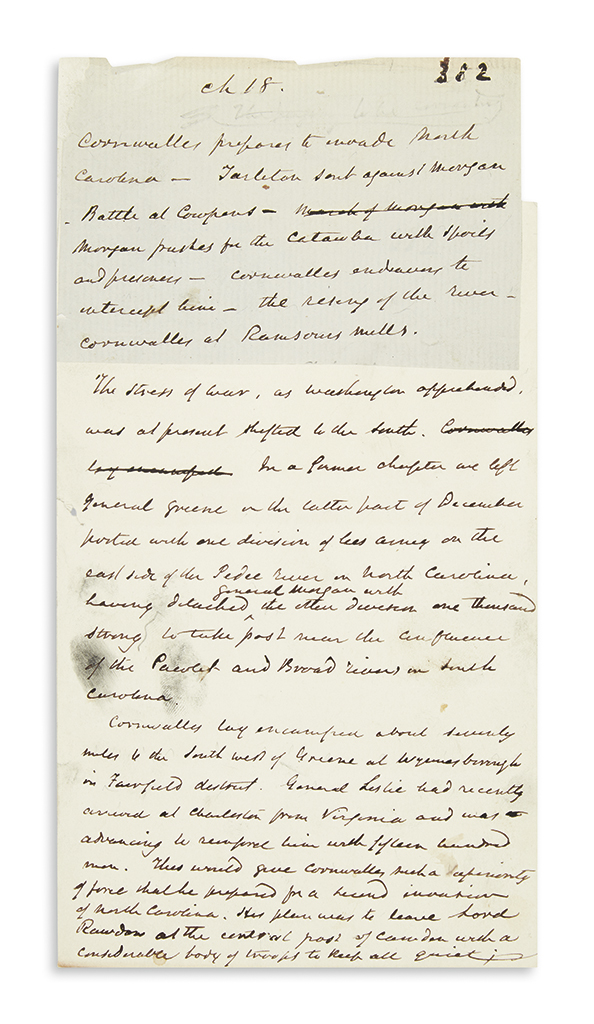 382
ch 18.
Cornwallis prepares to invade North
Carolina — Tarleton sent against Morgan
- Battle at Cowpens — March of Morgan with
Morgan pushes for the Catawba with spoils
and prisoners — Cornwallis endeavors to
intercept him — the rising of the river —
Cornwallis at Ramsours mills.
The stress of war, as Washington apprehended,
was at present shifted to the south. Cornwallis
lay encamped In a former chapter we left
general Greene in the latter part of December
posted with one division of his army on the
east side of the Pedee river in North Carolina,
general Morgan with
having detached ^ the other division one thousand
strong to take post near the confluence
of the Pacolet and Broad rivers in South
Carolina
Cornwallis lay encamped about seventy
miles to the south west of Greene at Wynnesborough
in Fairfield district. General Leslie had recently
arrived at Charleston from Virginia and was
advancing to reinforce him with fifteen hundred
men. This would give Cornwallis such a superiority
of force that he prepared for a second invasion
of North Carolina. His plan was to leave Lord
Rawdon at the central post of Camden with a
considerable body of troops to keep all quiet;